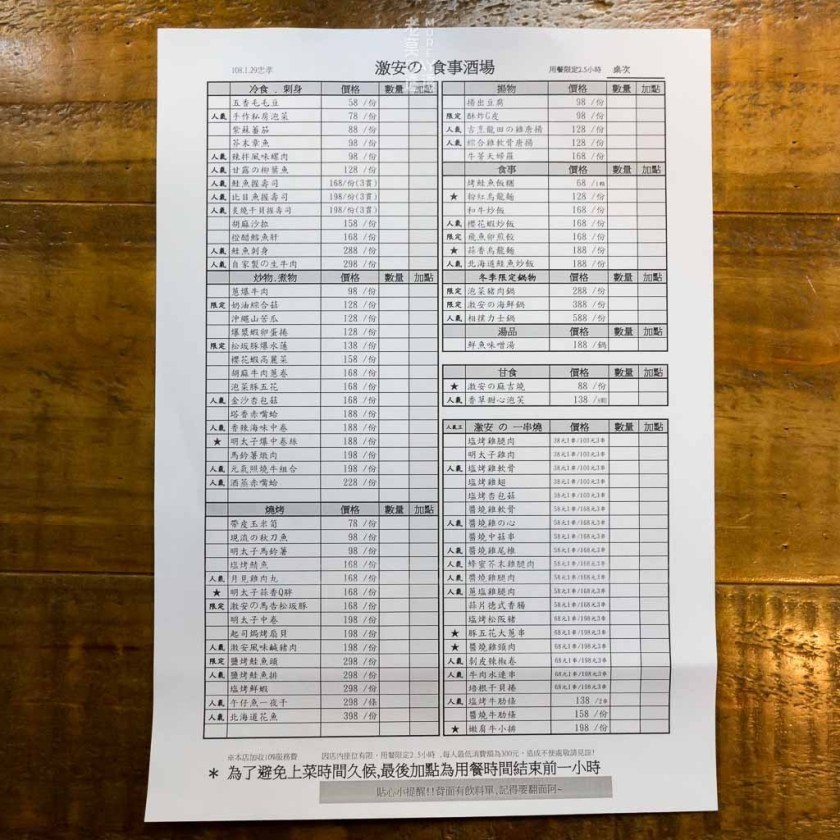 108.1.29忠孝 激安の 食事酒場 用餐限定2.5小時 桌次
冷食．刺身 價格 數量 加點
五香毛毛豆 58 /份
人氣 手作私房泡菜 78 /份
紫蘇蕃茄 88 /份
芥末章魚 98 /份
人氣 辣拌風味螺肉 98 /份
人氣 甘露の柳葉魚 128 /份
人氣 鮭魚握壽司 168/份(3貫)
人氣 比目魚握壽司 198/份(3貫)
人氣 炙燒干貝握壽司 198/份(3貫)
胡麻沙拉 158 /份
橙醋鱈魚肝 168 /份
人氣 鮭魚刺身 288 /份
人氣 自家製の生牛肉 298 /份
炒物.煮物 價格 數量 加點
蔥爆牛肉 98 /份
限定 奶油綜合菇 128 /份
沖繩山苦瓜 128 /份
爆漿蝦卵蛋捲 128 /份
限定 松坂豚爆水蓮 138 /份
櫻花蝦高麗菜 158 /份
胡麻牛肉蔥卷 168 /份
泡菜豚五花 168 /份
人氣 金沙杏包菇 168 /份
塔香赤嘴蛤 188 /份
人氣 香辣海味中卷 188 /份
★ 明太子爆中卷絲 188 /份
馬鈴薯燉肉 198 /份
人氣 元氣照燒牛組合 198 /份
人氣 酒蒸赤嘴蛤 228 /份
燒烤 價格 數量 加點
帶皮玉米筍 78 /份
現流の秋刀魚 98 /份
明太子馬鈴薯 98 /份
塩烤鯖魚 168 /份
人氣 月見雞肉丸 168 /份
★ 明太子蒜香Q胖 168 /份
限定 激安の馬告松坂豚 168 /份
明太子中卷 198 /份
起司焗烤扇貝 198 /份
人氣 激安風味鹹豬肉 198 /份
限定 鹽烤鮭魚頭 298 /份
人氣 鹽烤鮭魚排 298 /份
塩烤鮮蝦 298 /份
人氣 午仔魚一夜干 298 /條
人氣 北海道花魚 398 /份
揚物 價格 數量 加點
揚出豆腐 98 /份
限定 酥炸G皮 98 /份
人氣 古烹龍田の雞唐揚 128 /份
人氣 綜合雞軟骨唐揚 128 /份
牛蒡天婦羅 168 /份
食事 價格 數量 加點
烤鮭魚飯糰 68
★ 粉紅烏龍麵 128 /份
和牛炒飯 168 /份
人氣 櫻花蝦炒飯 168 /份
限定 飛魚卵煎餃 168 /份
★ 蒜香烏龍麵 188 /份
人氣 北海道鮭魚炒飯 188 /份
冬季限定鍋物 價格 數量 加點
限定 泡菜豬肉鍋 288 /份
限定 激安の海鮮鍋 388 /份
人氣 相撲力士鍋 588 /份
湯品 價格 數量 加點
鮮魚味噌湯 188 /鍋
甘食 價格 數量 加點
★ 激安の麻古燒 88 /份
人氣 香草甜心泡芙 138
激安 の 一串燒 價格 數量 加點
塩烤雞腿肉 38元1串/105元3串
明太子雞肉 38元1串/105元3串
人氣 塩烤雞軟骨
塩烤雞翅
塩烤杏包菇
醬燒雞軟骨
人氣 醬燒雞の心
醬燒中菇串
人氣 醬燒雞尾椎
人氣 蜂蜜芥末雞腿肉
人氣 醬燒雞腿肉
人氣 蔥塩雞腿肉
蒜片德式香腸
塩烤松阪豬
★ 豚五花大蔥串 68元1串/198元3串
★ 醬燒雞頸肉 68元1串/198元3串
人氣 剝皮辣椒卷 68元1串/198元3串
人氣 牛肉水蓮串 68元1串/198元3串
培根干貝捲 68元1串/198元3串
人氣 塩烤牛肋條 138
醬燒牛肋條 158 /份
★ 嫩肩牛小排 198 /份
※本店加收10%服務費 因店內座位有限，用餐限定2.5小時，每人最低消費額為300元，造成不便處敬請見諒！
* 為了避免上菜時間久候,最後加點為用餐時間結束前一小時
貼心小提醒!!背面有飲料單,記得要翻面阿~